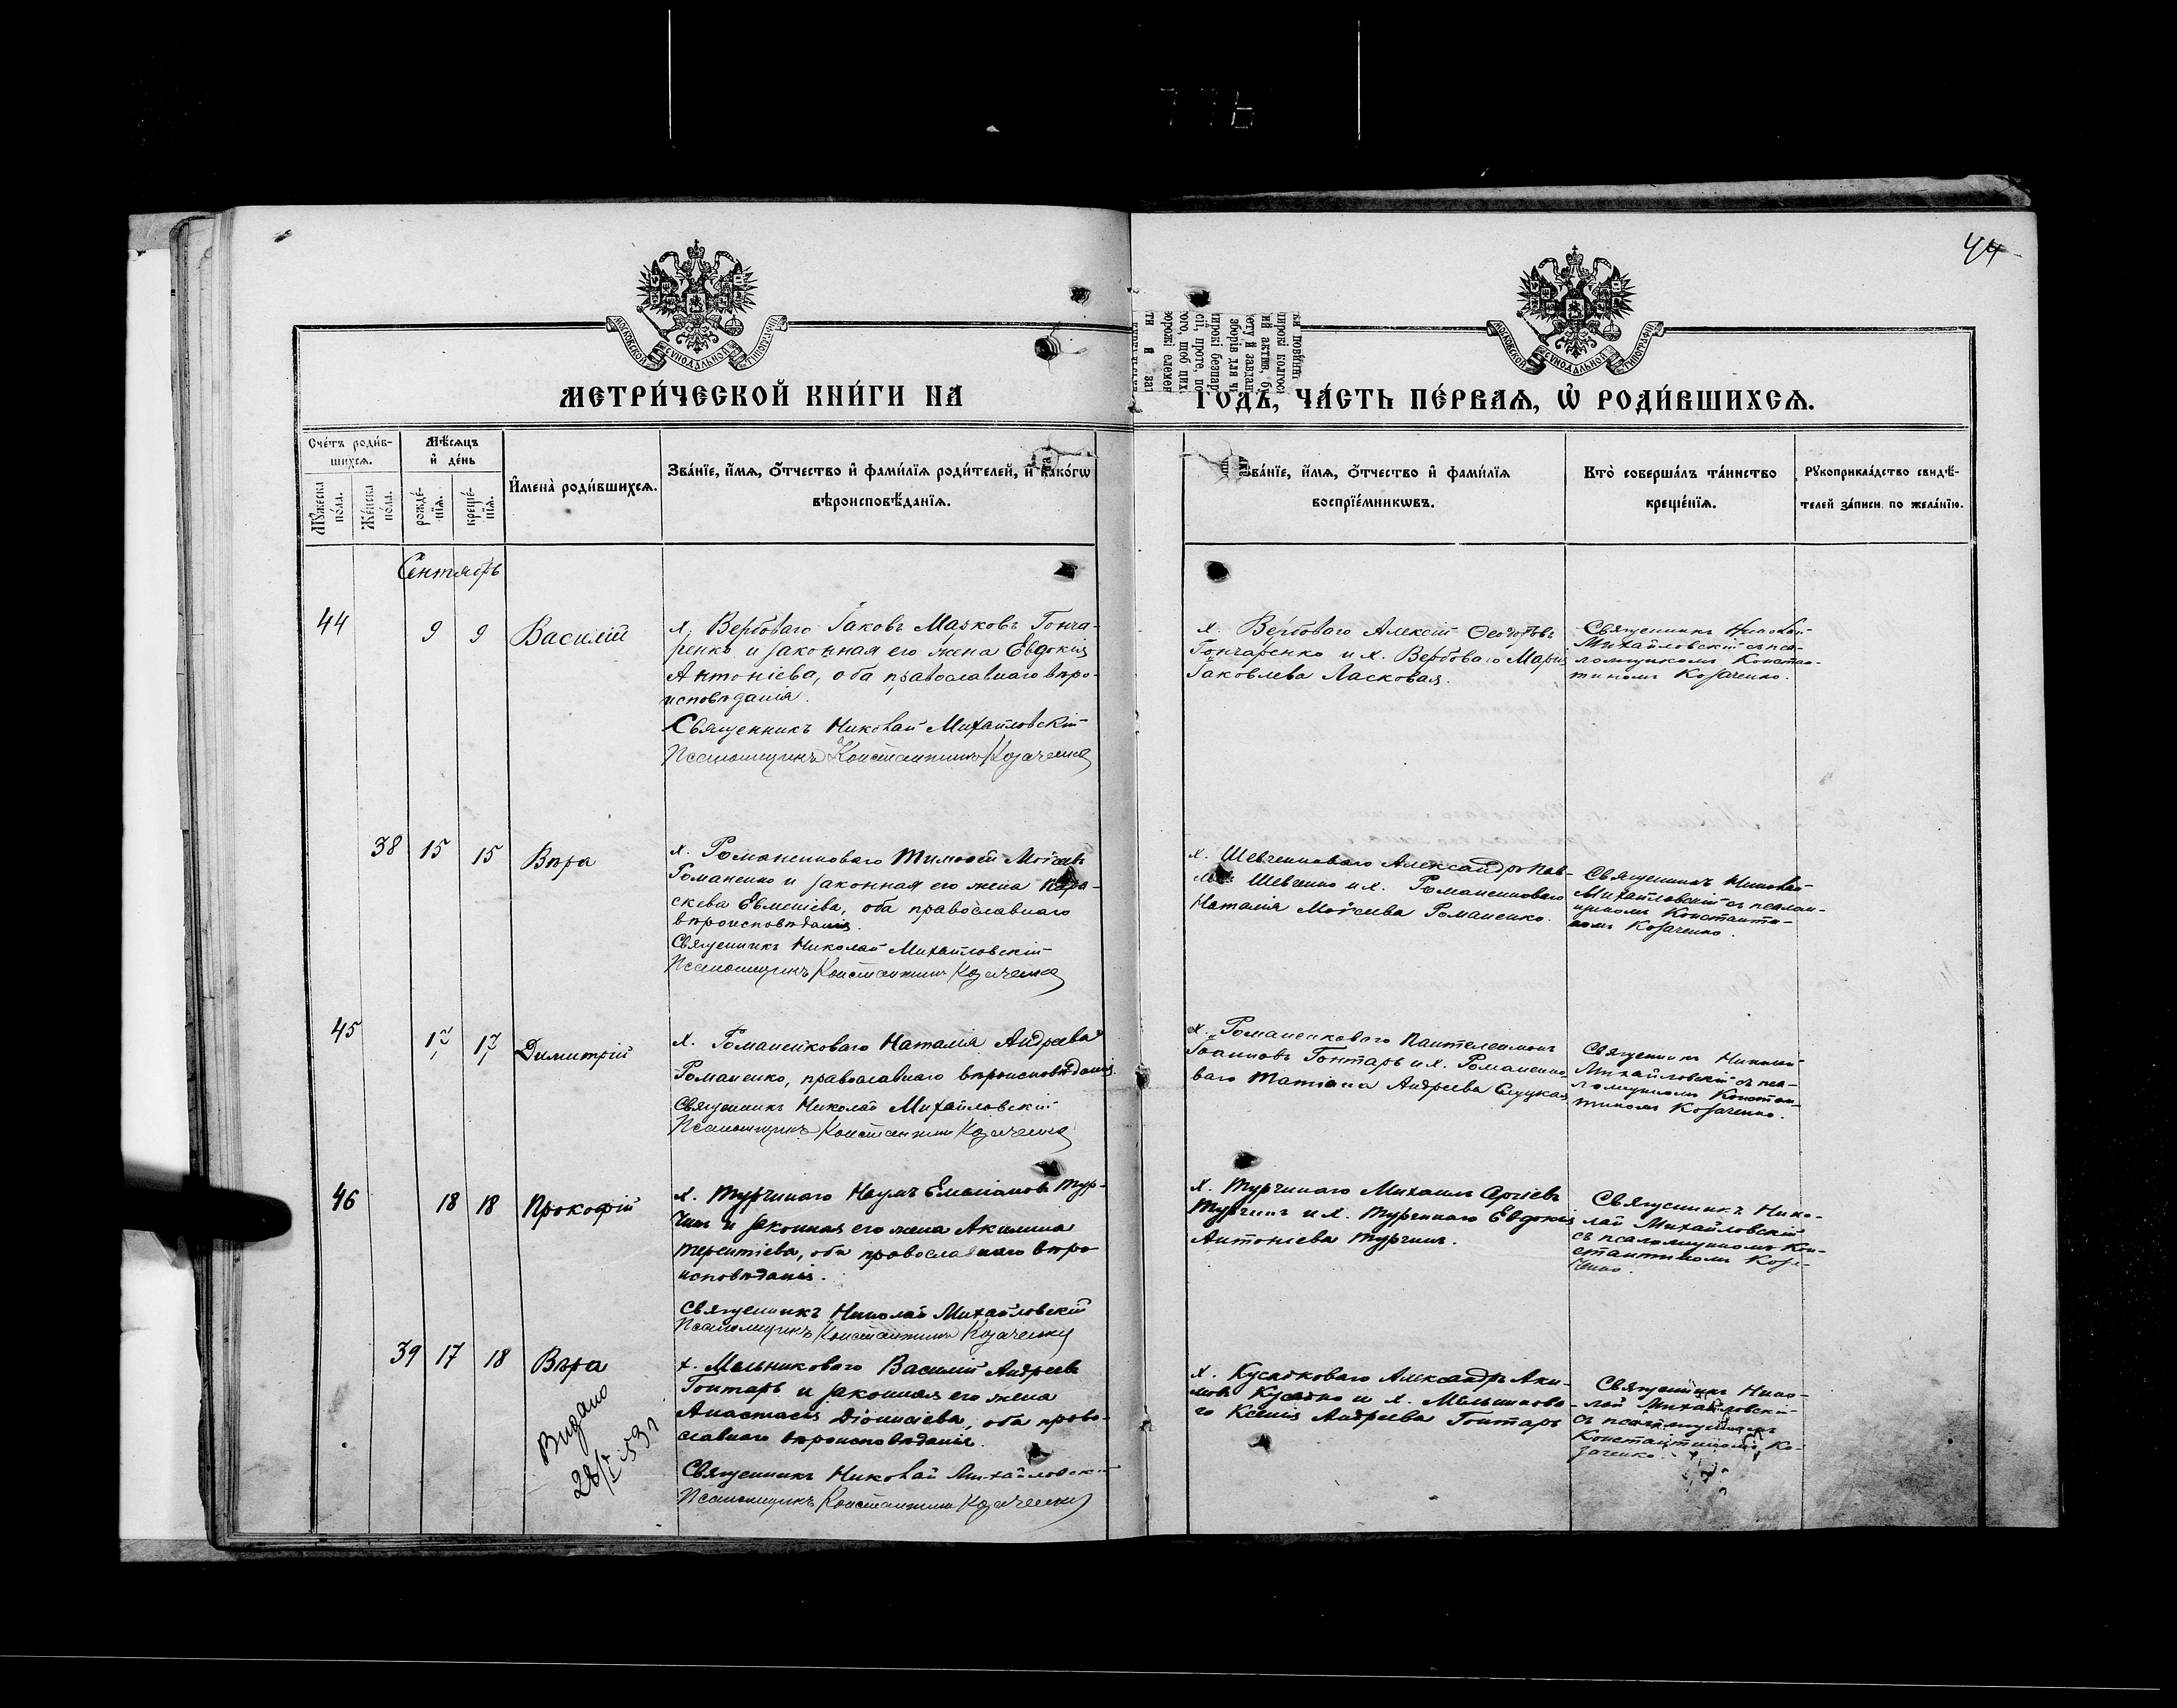 44
МОСКОВСКОЙ СУНОДАЛЬНОЙ ТИПОГРАФІИ
МОСКОВСКОЙ СУНОДАЛЬНОЙ ТИПОГРАФІИ
МЕТРИ́ЧЕСКОЙ КНИ́ГИ НА
ГОДЪ, ЧА́СТЬ ПЕ́РВАѦ, Ѡ҆ РОДИ́ВШИХСѦ.
Сче́тъ роди́в-
шихсѧ.
Мѣ́сѧцъ
и҆ де́нь
Мꙋ́жеска
по́ла.
Же́нска
по́ла.
рожде́-
нїѧ.
креще́-
нїѧ.
И҆мена̀ роди́вшихсѧ.
Зва́нїе, и҆́мѧ, ѻ҆́тчество и҆ фами́лїѧ роди́телей, и҆ како́гѡ
вѣроисповѣ́данїѧ.
Зва́нїе, и҆́мѧ, ѻ҆́тчество и҆ фами́лїѧ
воспрїе́мникѡвъ.
Кто̀ соверша́лъ та́инство
креще́нїѧ.
Рꙋкоприкла́дство свидѣ́-
телей за́писи по жела́нїю.
Сентябрь
44 9 9 Василій
х. Вербоваго Іаковъ Марковъ Гонча-
ренко и законная его жена Евдокія
Антоніева, оба православнаго вѣро-
исповѣданія.
Священникъ Николай Михайловскій
Псаломщикъ Константинъ Козаченко
х. Вербоваго Алексій Феодотовъ
Гончаренко и х. Вербоваго Марія
Іаковлева Ласковая.
Священникъ Николай
Михайловскій съ пса-
ломщикомъ Констан-
тиномъ Козаченко.
38 15 15 Вѣра
х. Романенковаго Тимофей Моѵсеевъ
Романенко и законная его жена Пара-
скева Евменіева, оба православнаго
вѣроисповѣданія.
Священникъ Николай Михайловскій
Псаломщикъ Константинъ Козаченко
х. Шевченковаго Александръ Пав-
Шевченко и х. Романенковаго
Наталія Моѵсеева Романенко.
Священникъ Николай
Михайловскій съ псалом-
щикомъ Константи-
номъ Козаченко.
45 17 17 Димитрій
х. Романенковаго Наталія Андреева
Романенко, православнаго вѣроисповѣданія
Священникъ Николай Михайловскій
Псаломщикъ Константинъ Козаченко
х. Романенковаго Пантелеимонъ
Іоанновъ Гонтарь и х. Романенко-
ваго Татіана Андреева Слуцкая
Священникъ Николай
Михайловскій съ пса-
ломщикомъ Констан-
тиномъ Козаченко.
46 18 18 Прокофій
х. Турчинаго Наумъ Емеліановъ Тур-
чинъ и законная его жена Акилина
Терентіева, оба православнаго вѣро-
исповѣданія.
Священникъ Николай Михайловскій
Псаломщикъ Константинъ Козаченко
х. Турчинаго Михаилъ Сергіевъ
Турчинъ и х. Турчинаго Евдокія
Антоніева Турчинъ.
Священникъ Нико-
лай Михайловскій
съ псаломщикомъ Кон-
стантиномъ Коза-
ченко.
39 17 18 Вѣра
х. Мельниковаго Василій Андреевъ
Гонтарь и законная его жена
Анастасія Діонисіева, оба право-
славнаго вѣроисповѣданія.
Священникъ Николай Михайловскій
Псаломщикъ Константинъ Козаченко
х. Кусачковаго Александръ Аки-
мовъ Кусачко и х. Мельниково-
го Ксенія Андреева Гонтарь
Священникъ Нико-
лай Михайловскій
съ псаломщикомъ
Константиномъ Ко-
заченко.
Видано
28/I 53 г